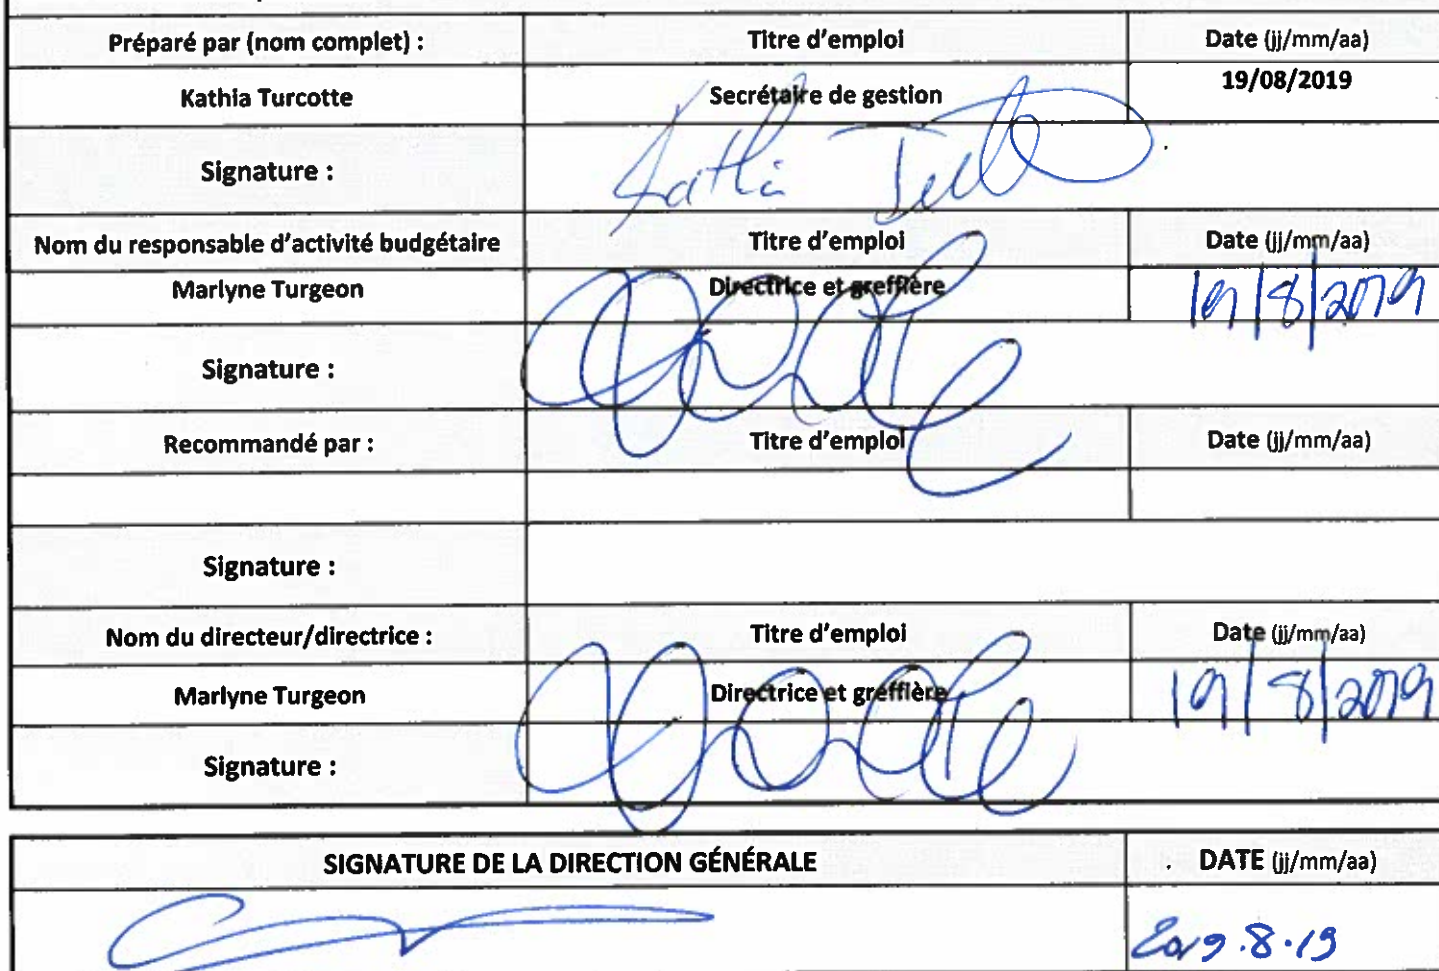 Préparé par (nom complet) : Titre d'emploi Date (jj/mm/aa)
Kathia Turcotte Secrétaire de gestion 19/08/2019
Signature : Kathia
Nom du responsable d'activité budgétaire Titre d'emploi Date (jj/mm/aa)
Marlyne Turgeon Directrice et greffière 19/8/2019
Signature :
Recommandé par : Titre d'emploi Date (jj/mm/aa)
Signature :
Nom du directeur/directrice : Titre d'emploi Date (jj/mm/aa)
Marlyne Turgeon Directrice et greffière 19/8/2019
Signature :
SIGNATURE DE LA DIRECTION GÉNÉRALE DATE (jj/mm/aa)
2019.8.19